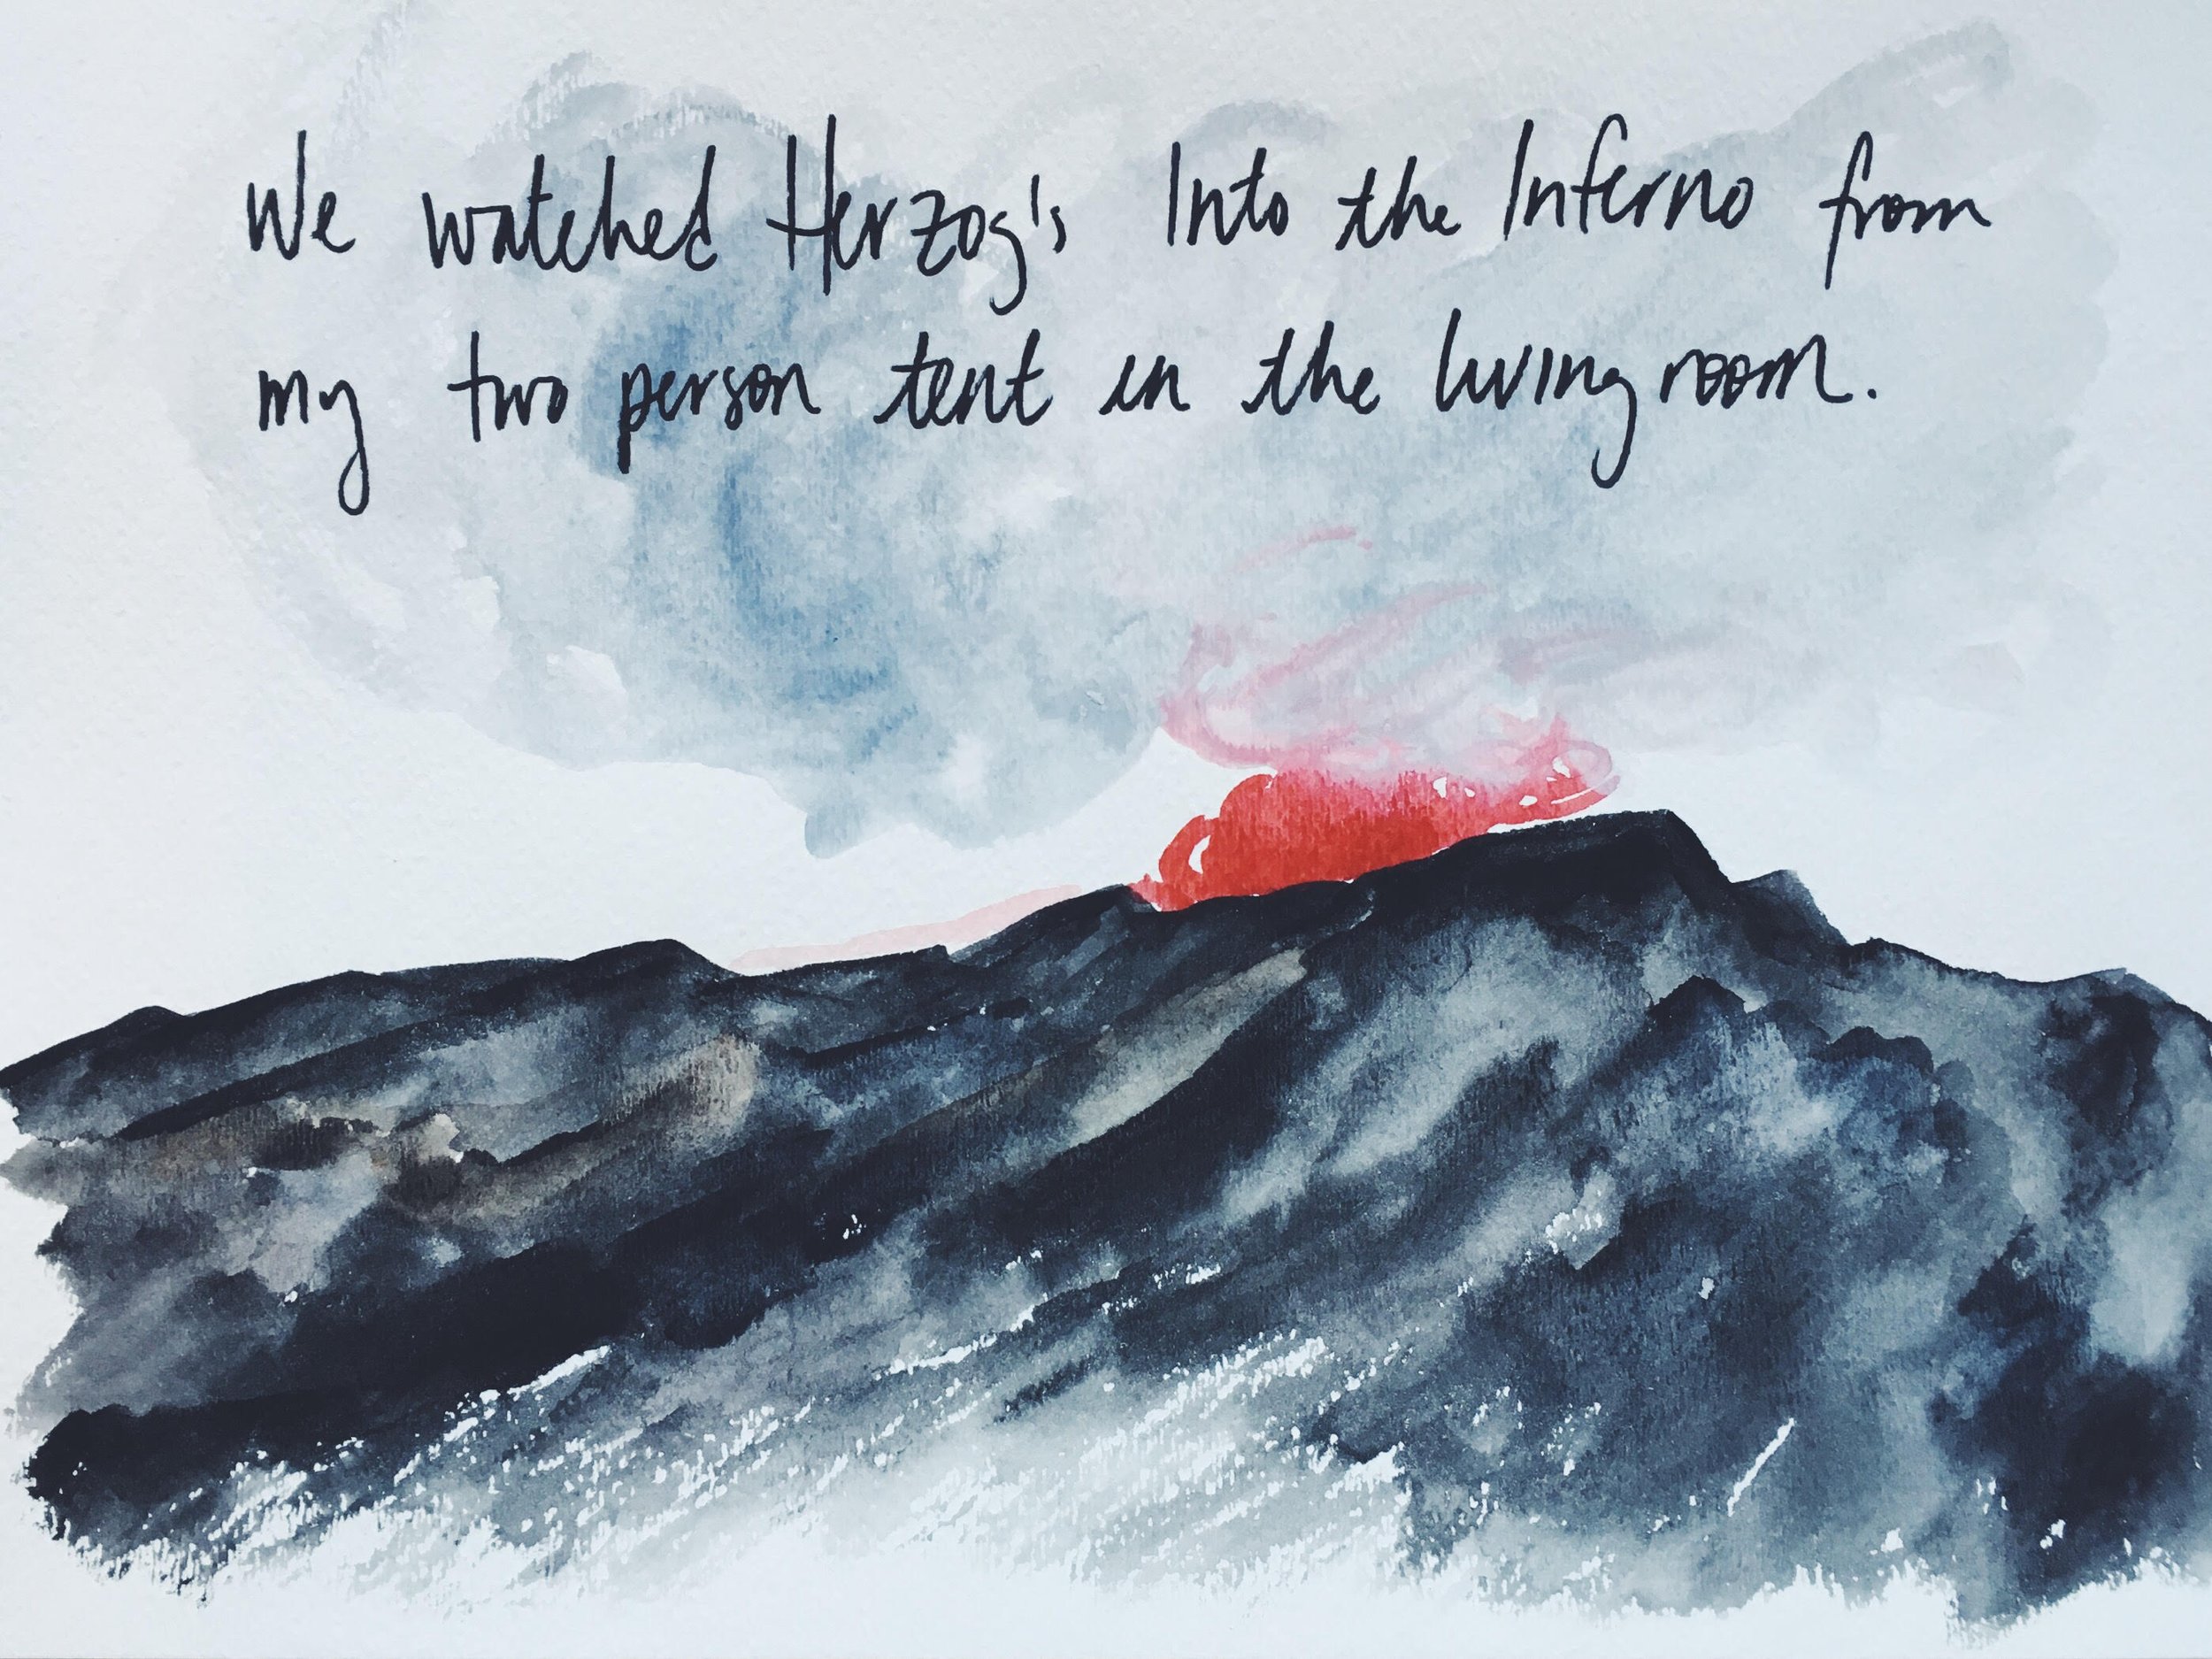 We watched Herzog's Into the Inferno from
my two person tent in the living room.